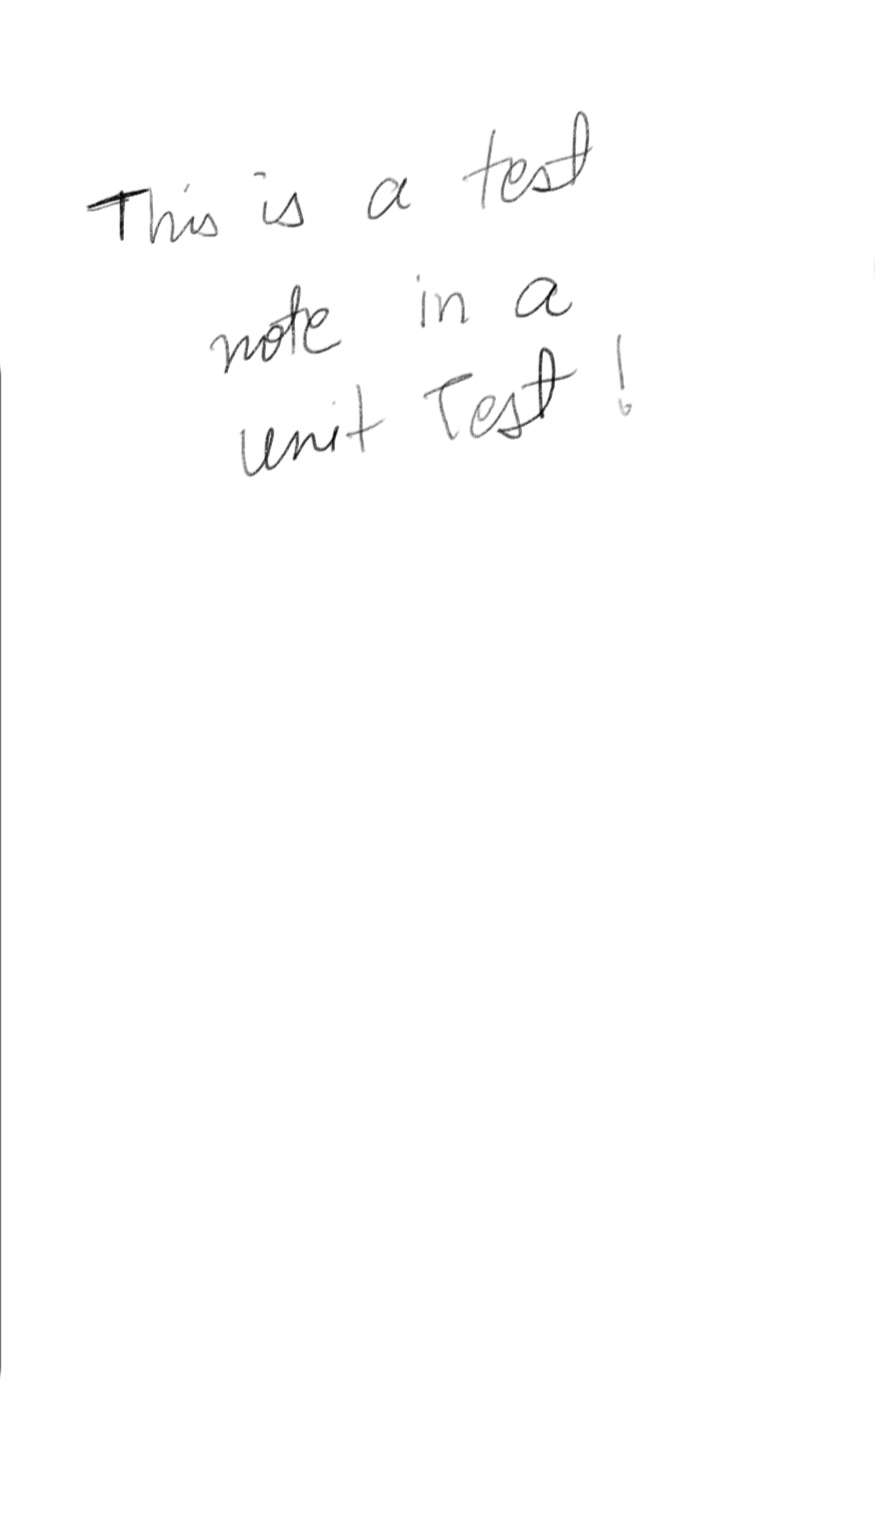 This is a test
note in a
unit Test!